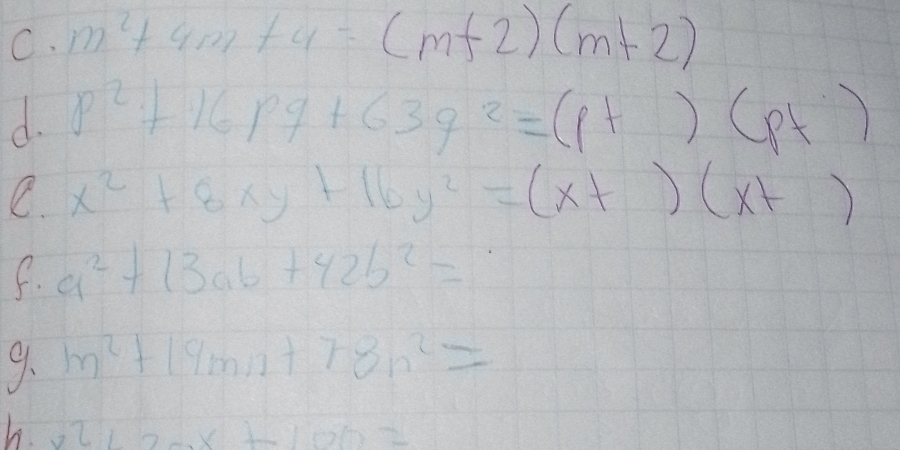 c. m²+4m+4 = (m+2)(m+2)
d. p²+16pq+63q² = (p+ ) (p+ )
e. x²+8xy+16y² = (x+ ) (x+ )
f. a²+13ab+42b² =
g. m²+19mn+78n² =
h. x²+20x+100 =